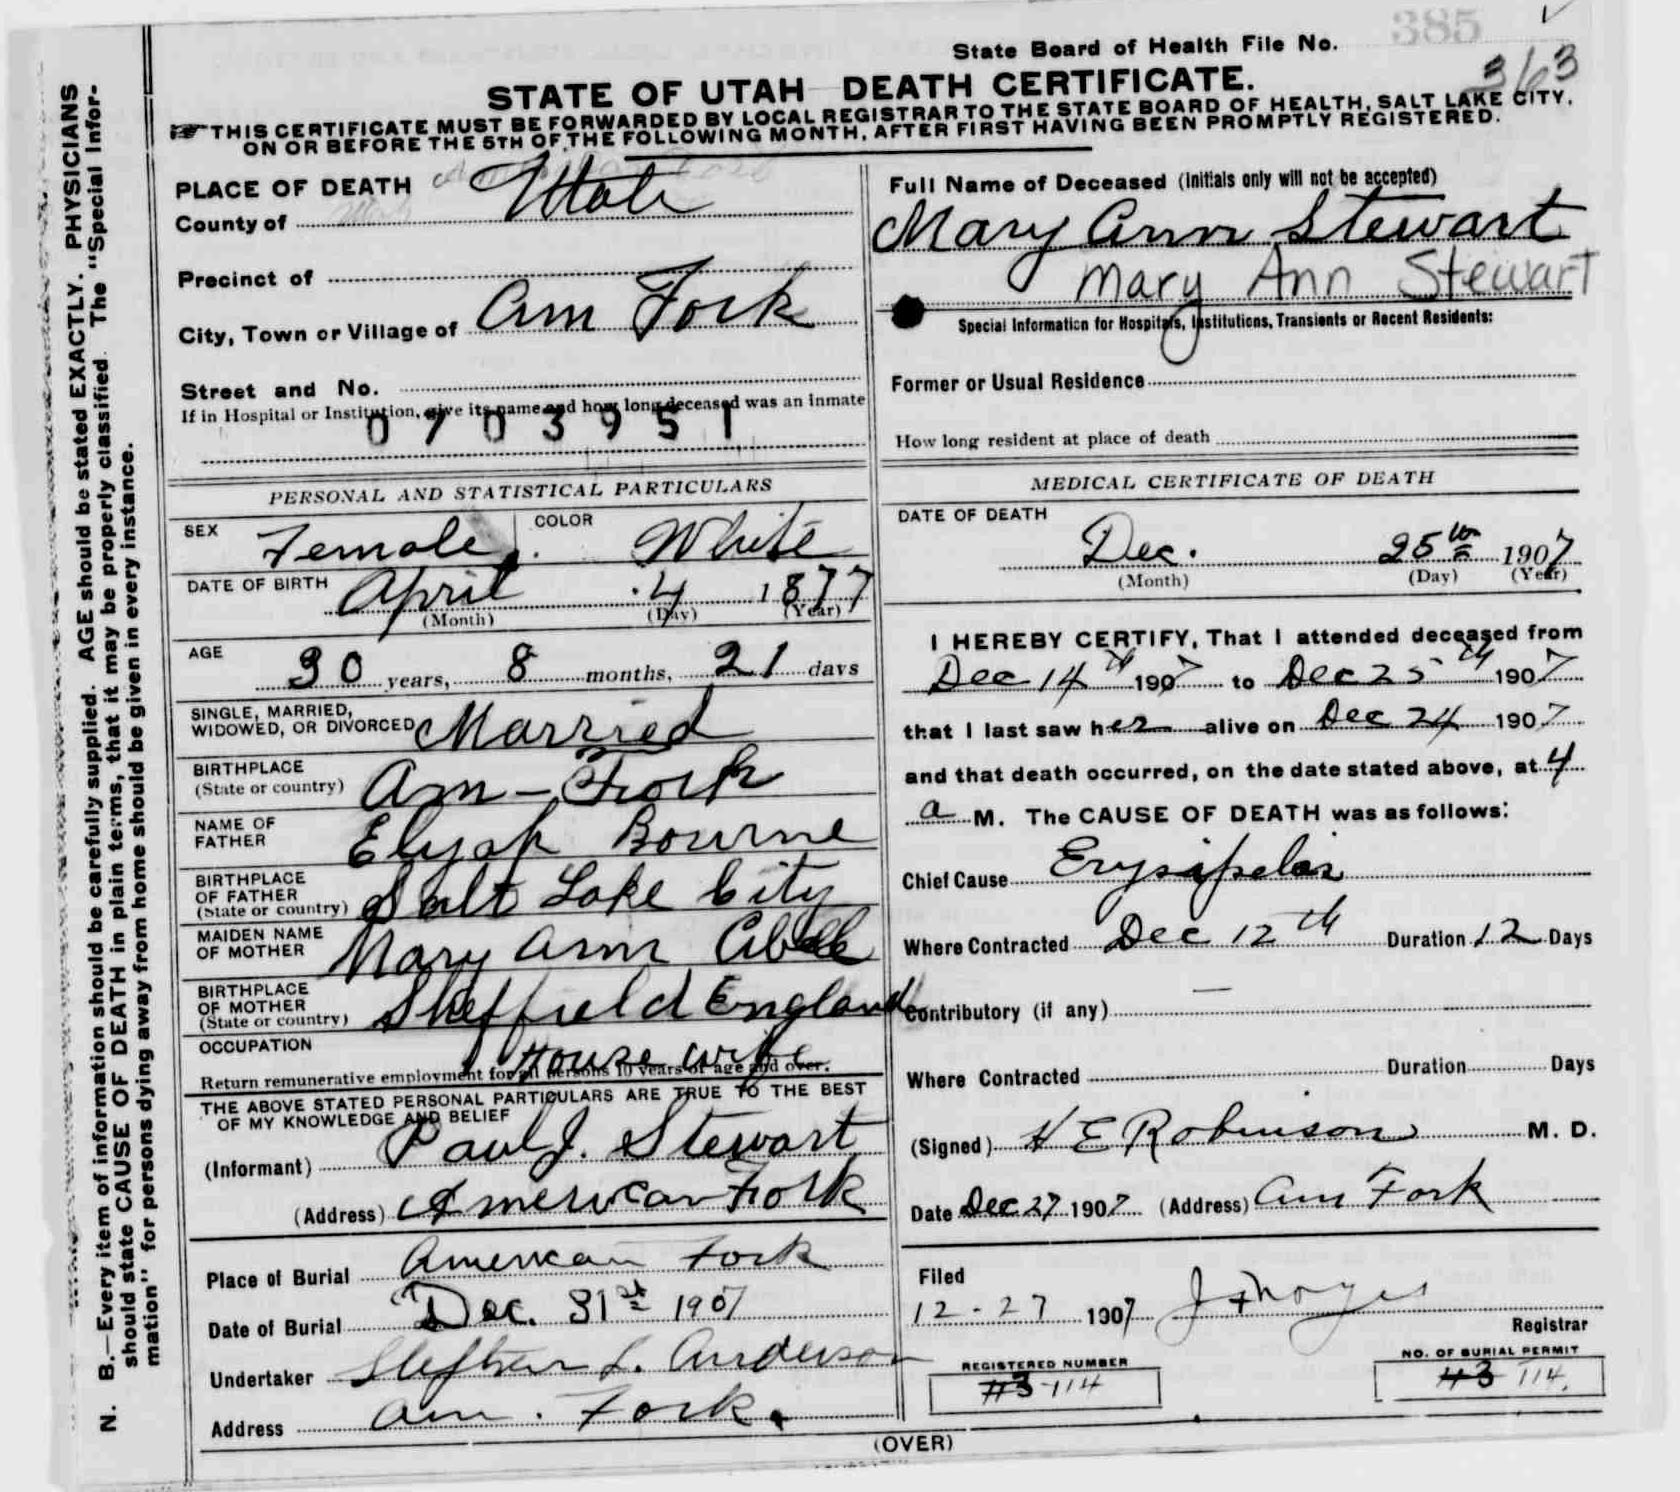 385
State Board of Health File No.
363
STATE OF UTAH DEATH CERTIFICATE.
THIS CERTIFICATE MUST BE FORWARDED BY LOCAL REGISTRAR TO THE STATE BOARD OF HEALTH, SALT LAKE CITY,
ON OR BEFORE THE 5TH OF THE FOLLOWING MONTH, AFTER FIRST HAVING BEEN PROMPTLY REGISTERED.
N. B.—Every item of information should be carefully supplied. AGE should be stated EXACTLY. PHYSICIANS
should state CAUSE OF DEATH in plain terms, that it may be properly classified. The "Special Infor-
mation" for persons dying away from home should be given in every instance.
PLACE OF DEATH
County of Utah
Precinct of
City, Town or Village of Am Fork
Street and No.
If in Hospital or Institution, give its name and how long deceased was an inmate
0703951
PERSONAL AND STATISTICAL PARTICULARS
SEX Female COLOR White
DATE OF BIRTH April 4 1877
(Month) (Day) (Year)
AGE 30 years, 8 months, 21 days
SINGLE, MARRIED,
WIDOWED, OR DIVORCED Married
BIRTHPLACE
(State or country) Am-Fork
NAME OF
FATHER Elyah Bourne
BIRTHPLACE
OF FATHER
(State or country) Salt Lake City
MAIDEN NAME
OF MOTHER Mary Ann
BIRTHPLACE
OF MOTHER
(State or country) Sheffield England
OCCUPATION House wife
Return remunerative employment for all persons 10 years of age and over.
THE ABOVE STATED PERSONAL PARTICULARS ARE TRUE TO THE BEST
OF MY KNOWLEDGE AND BELIEF
(Informant) Paul J. Stewart
(Address) American Fork
Place of Burial American Fork
Date of Burial Dec. 31st 1907
Undertaker Stephen L. Anderson
Address Am. Fork.
Full Name of Deceased (Initials only will not be accepted)
Mary Ann Stewart
Mary Ann Stewart
Special Information for Hospitals, Institutions, Transients or Recent Residents:
Former or Usual Residence
How long resident at place of death
MEDICAL CERTIFICATE OF DEATH
DATE OF DEATH
Dec. 25th 1907
(Month) (Day) (Year)
I HEREBY CERTIFY, That I attended deceased from
Dec 14th 1907 to Dec 25th 1907
that I last saw her alive on Dec 24 1907
and that death occurred, on the date stated above, at 4
a M. The CAUSE OF DEATH was as follows:
Chief Cause Erysipelas
Where Contracted Dec 12th Duration 12 Days
Contributory (if any) —
Where Contracted Duration Days
(Signed) H E Robinson M. D.
Date Dec 27 1907 (Address) Am Fork
Filed
12-27 1907
Registrar
REGISTERED NUMBER
#3 114
NO. OF BURIAL PERMIT
#3 114.
(OVER)